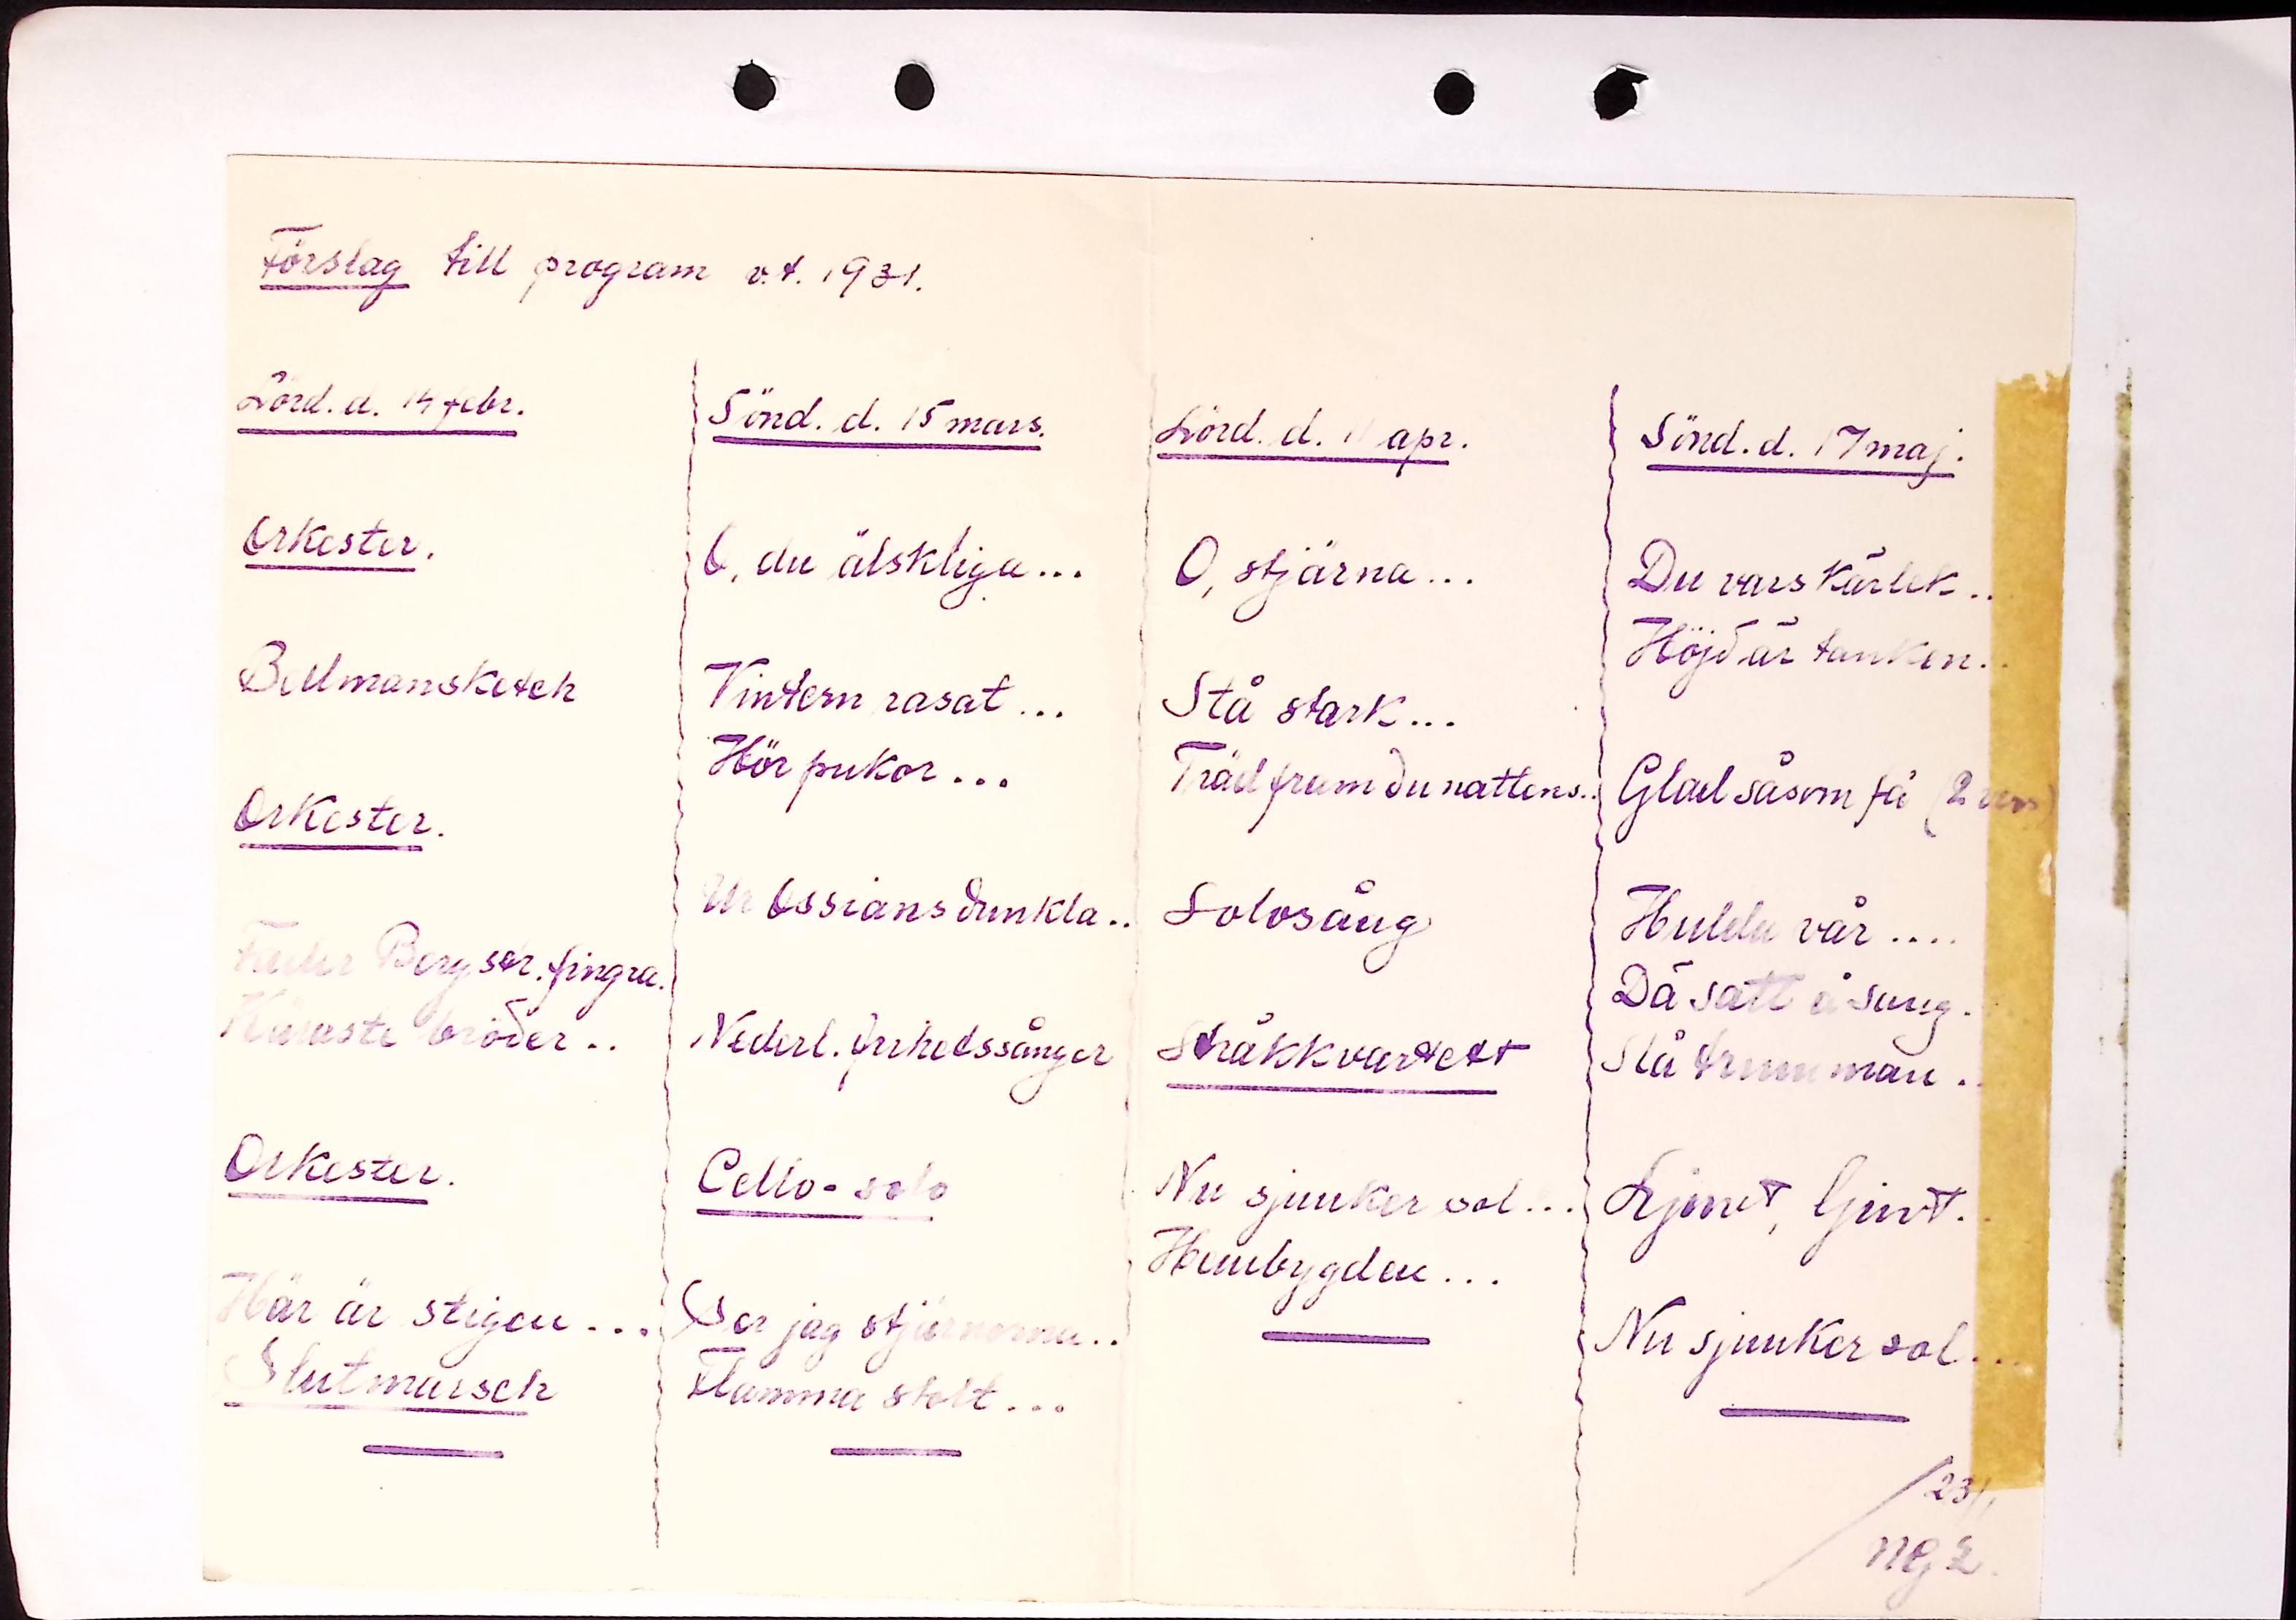 Förslag till program v.t. 1931.
Lörd. d. 14 febr.
Orkester.
Bellmansketch
Orkester.
Fader Berg sär. fingra.
Käraste bröder..
Orkester.
Här är stigen...
Slutmarsch
Sönd. d. 15 mars.
O, du älskliga...
Vintern rasat...
Hör pukor...
Ur Ossians dunkla..
Nederl. frihetssånger
Cello-solo
Ser jag stjärnorna..
Flamma stolt...
Lörd. d. 11 apr.
O, stjärna...
Stå stark...
Träd fram du nattens..
Solosång
Stråkkvartett
Nu sjunker sol...
Hembygden...
Sönd. d. 17 maj.
Du vars kärlek..
Höjd är tanken..
Glad såsom få (2 vers)
Hulda vår....
Då satt å sung.
Slå trumman..
Ljuvt, ljuvt..
Nu sjunker sol...
/23/1